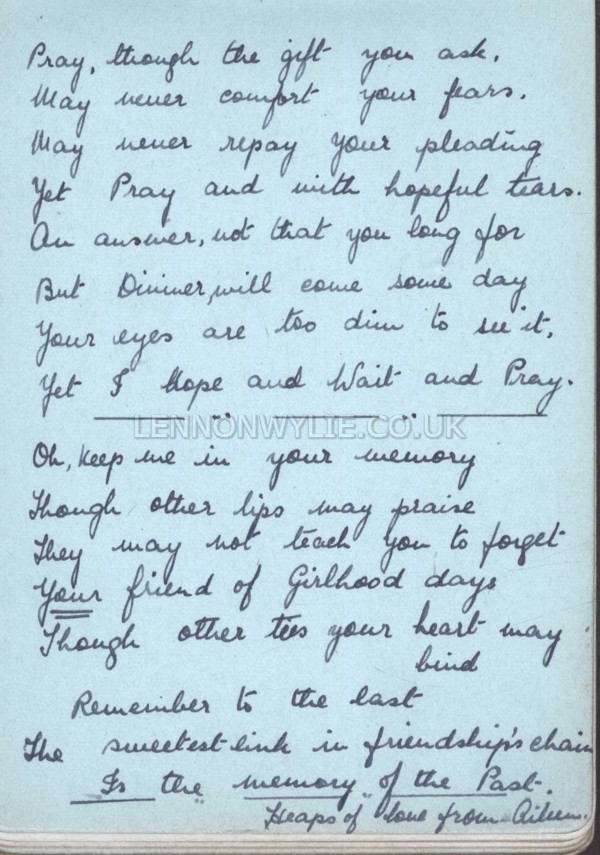 Pray, though the gift you ask,
May never comfort your fears.
May never repay your pleading
Yet Pray and with hopeful tears.
An answer, not that you long for
But Diviner, will come some day
Your eyes are too dim to see it,
Yet I Hope and Wait and Pray.
LENNONWYLIE.CO.UK
Oh, keep me in your memory
Though other lips may praise
They may not teach you to forget
Your friend of Girlhood days
Though other ties your heart may
bind
Remember to the last
The sweetest link in friendship's chain
Is the "memory" of the Past.
Heaps of love from Aileen.